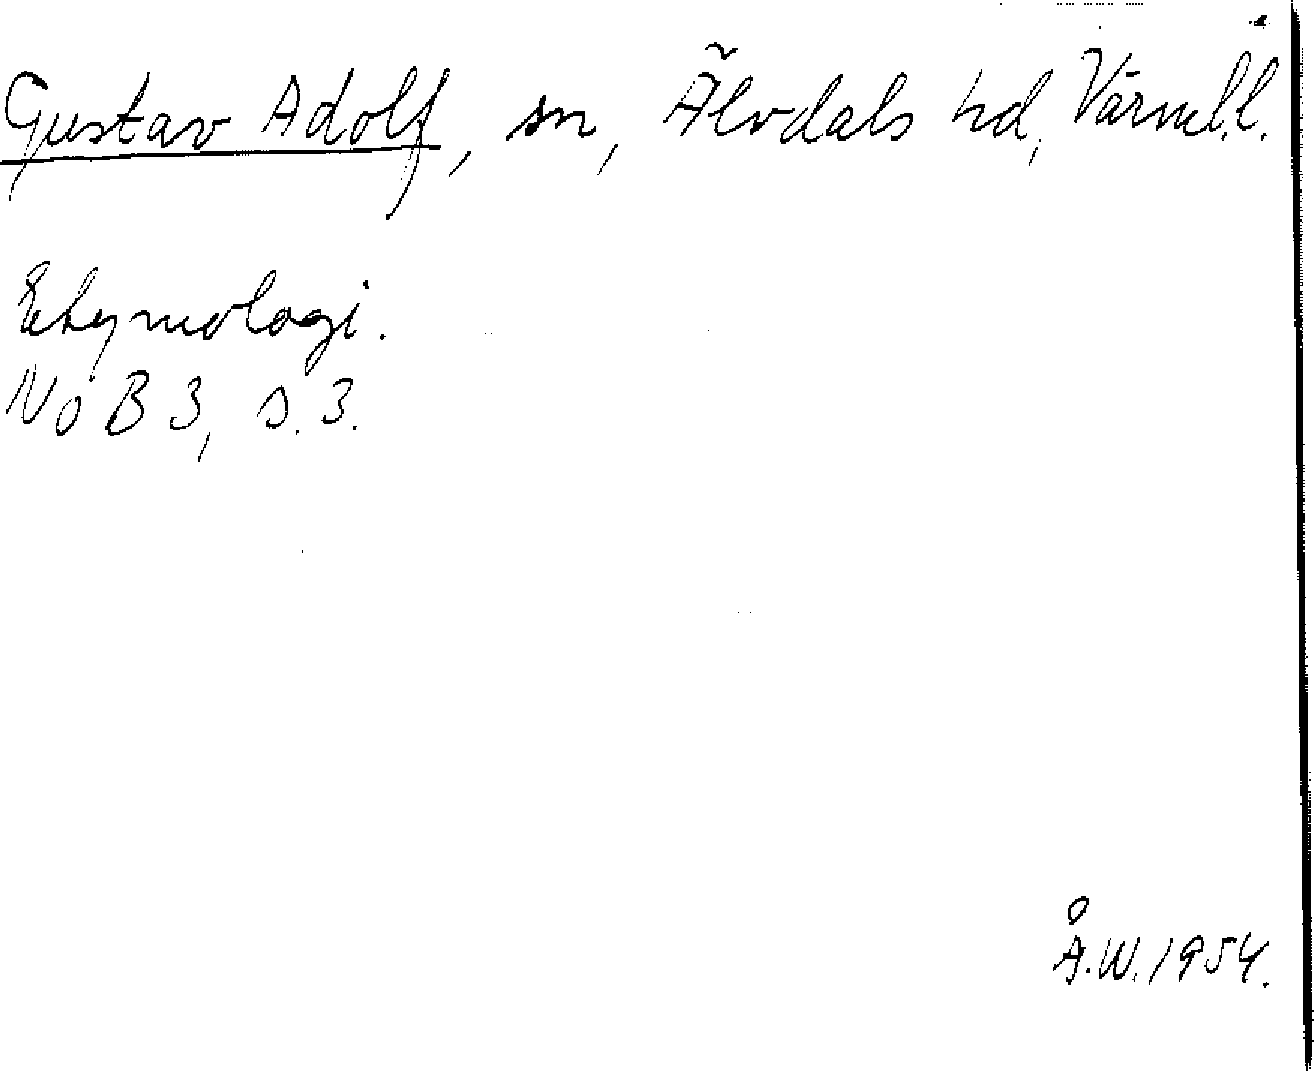 Gustav Adolf, sn, Älvdals hd, Värml.l.
Etymologi.
NoB 3, s. 3.
Å.W. 1954.